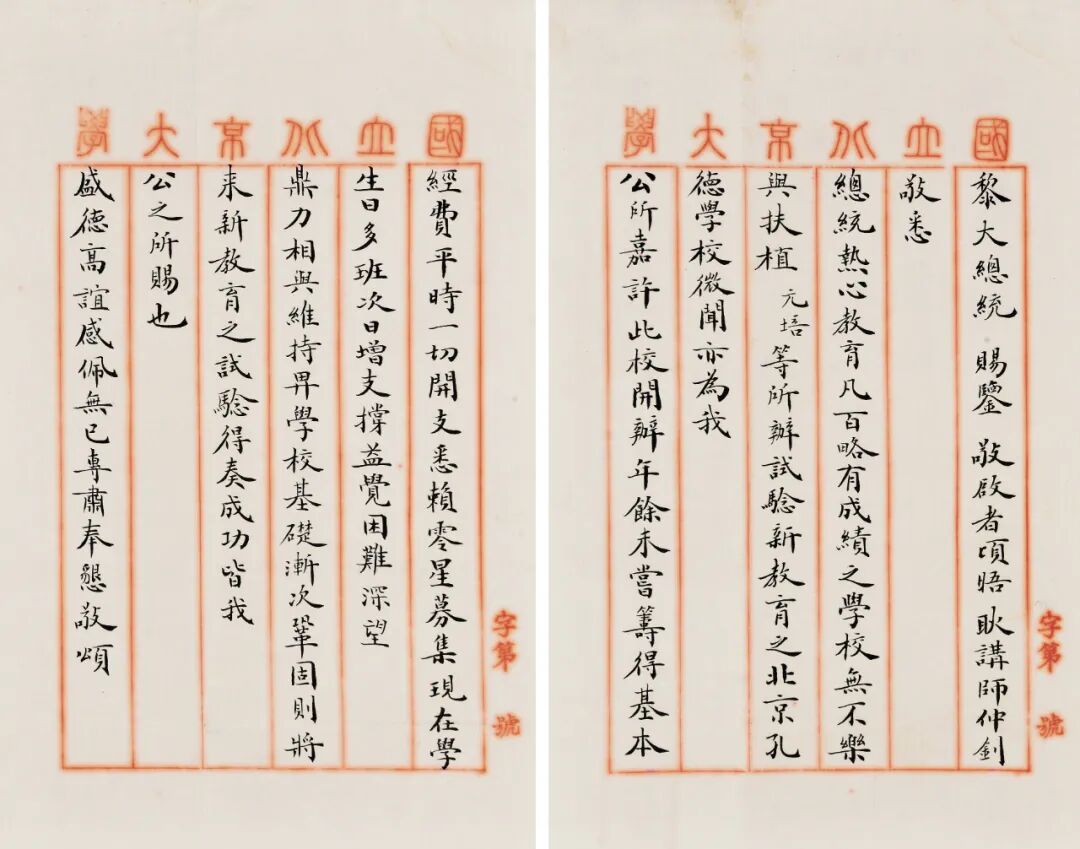 國立北京大學
黎大總統 賜鑒 敬啟者頃晤耿講師仲釗
敬悉
總統熱心教育凡百略有成績之學校無不樂
與扶植 元培等所辦試驗新教育之北京孔
德學校微聞亦為我
公所嘉許此校開辦年餘未嘗籌得基本
字第 號
國立北京大學
經費平時一切開支悉賴零星募集現在學
生日多班次日增支撐益覺困難深望
鼎力相與維持畀學校基礎漸次鞏固則將
來新教育之試驗得奏成功皆我
公之所賜也
盛德高誼感佩無已專肅奉懇敬頌
字第 號